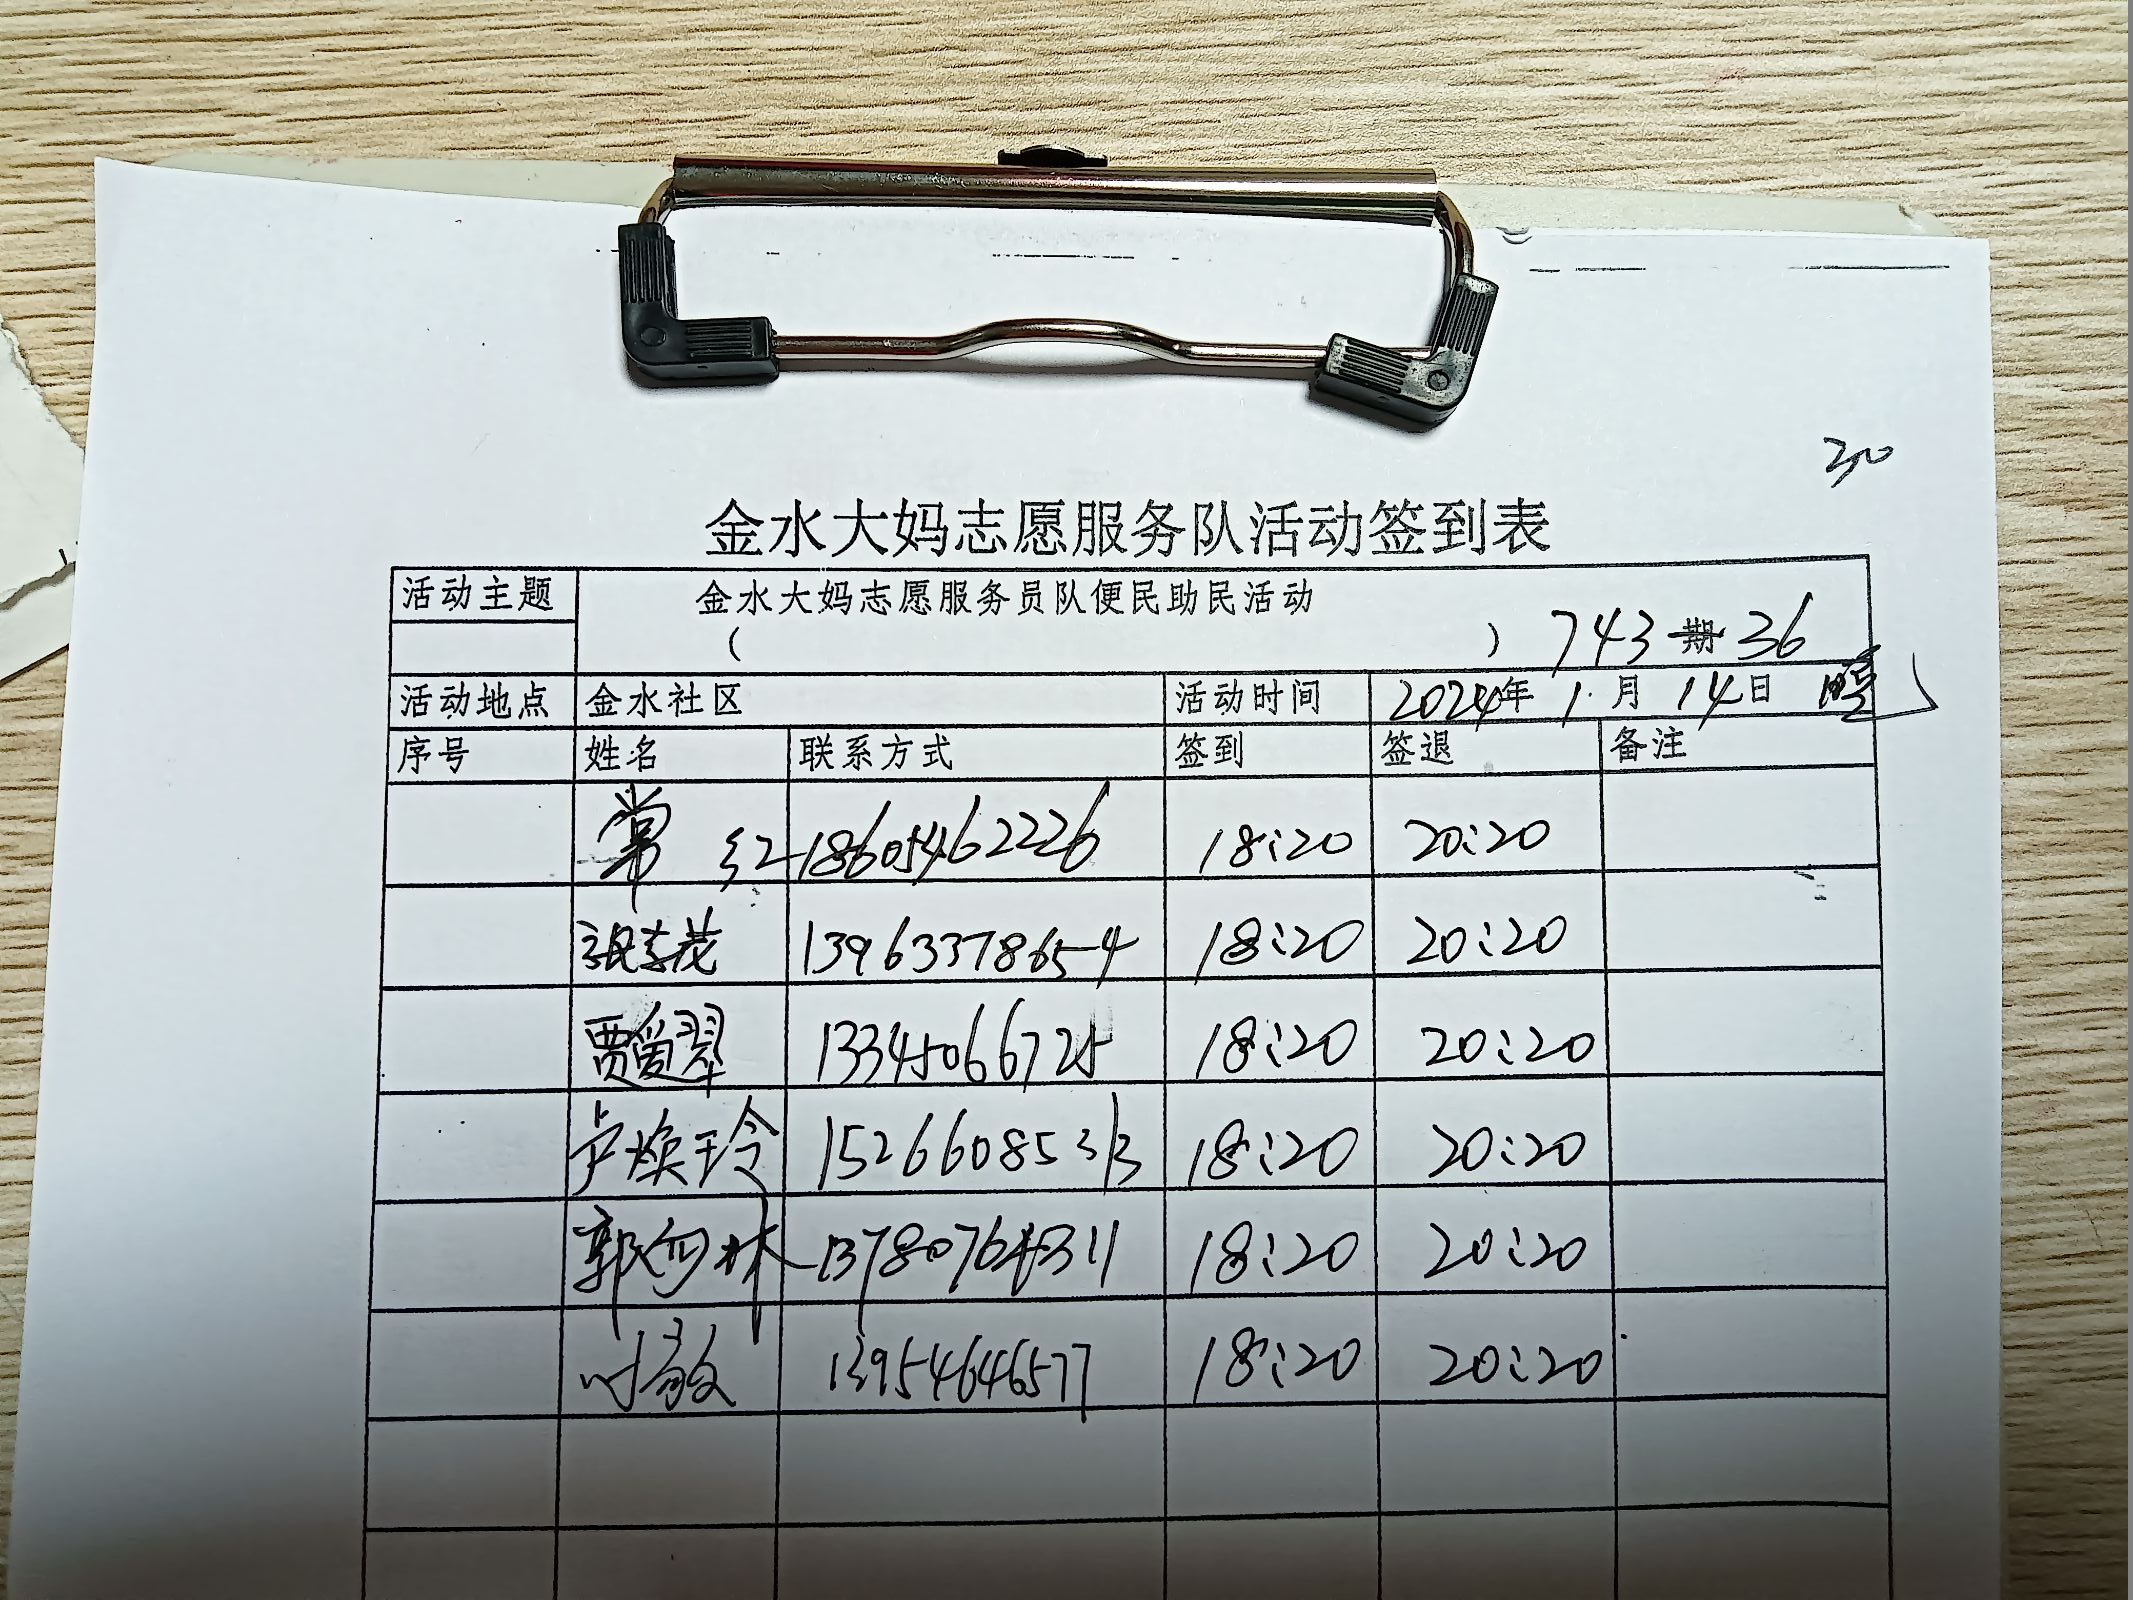 30
金水大妈志愿服务队活动签到表
活动主题 金水大妈志愿服务员队便民助民活动
( ) 743期36
活动地点 金水社区 活动时间 2024年1月14日
序号 姓名 联系方式 签到 签退 备注
常红 18605462226 18:20 20:20
张志茂 13963378654 18:20 20:20
贾爱翠 13345066725 18:20 20:20
卢焕玲 15266085313 18:20 20:20
郭向林 18:20 20:20
时敏 13954646577 18:20 20:20